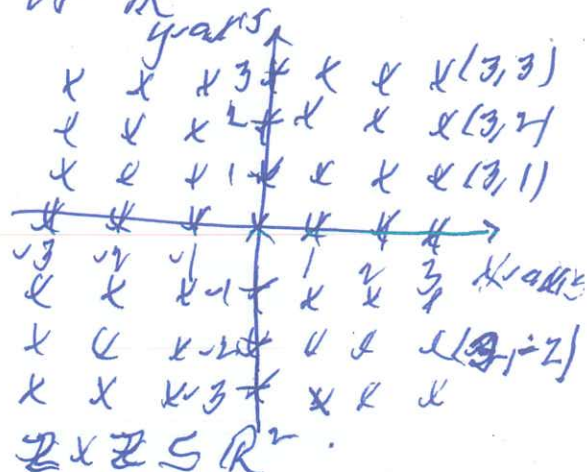 y-axis
x x x 3 x x x x (3,3)
x x x 2 x x x (3,2)
x x x 1 x x x x (3,1)
-3 -2 -1 1 2 3 X-axis
x x x -1 x x x
x x x -2 x x x (3,-2)
x x x -3 x x x
ℤ x ℤ ⊆ ℝ² .